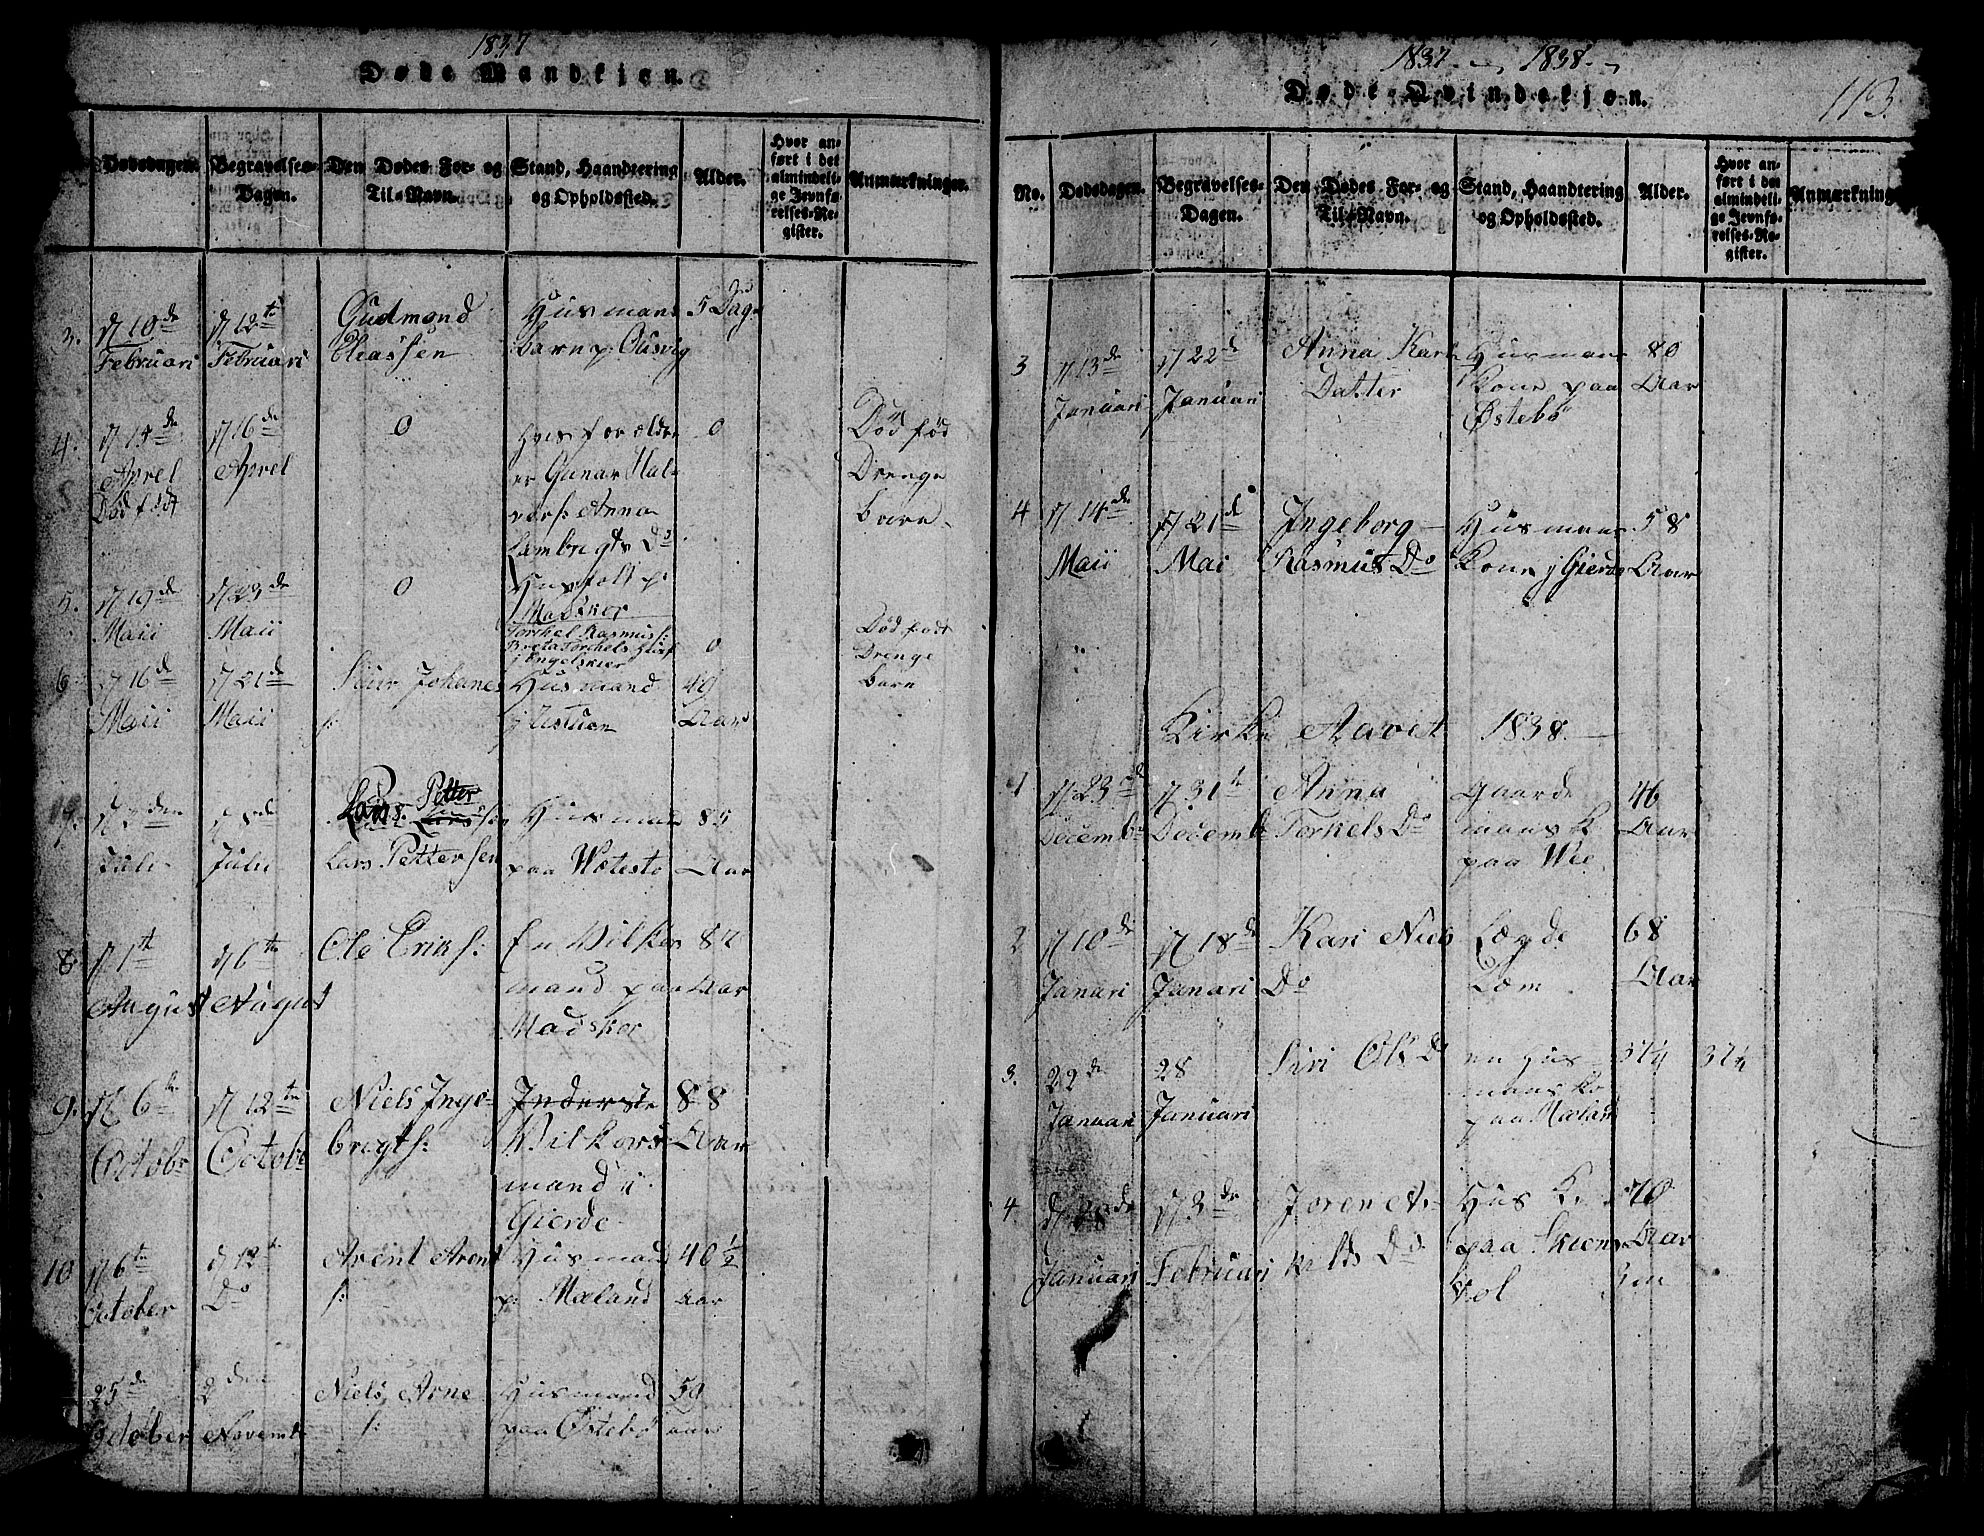 1837
Døde Mandkjøn.
Dødsdagen.
Begravelses-
Dagen.
Den Dødes For- og
Til-Navn.
Stand, Haandtering
og Opholdssted.
Alder.
Hvor an-
ført i det
almindeli-
ge Jevnfø-
relses-Re-
gister.
Anmærkninger.
3.
10de
Februari
12te
Februari
Gudmond
Eliassen
Husmans
barn p: Ousvig
5 Dage
4.
Aprel
Død født
16de
Aprel
0
hvis forældre
er Gunar Hal-
vors: Anna
Lambregts Do
0
Død fød
Drenge
barn
5.
19de
Maii
23de
Maii
0
Husfolk p:
Madskor
Torkel Rasmus s:
j Engelskier
0
Død født
Drenge
barn
6
16de
Maii
21de
Maii
Siur Johanes
s:
Husmand
49
Aar
7.
Juli
Julii
Lars Petter
Lars Pettersen
Husmand
paa Watestø
85
Aar
8
1te
August
6te
August
Ole Eriks:
En Vilkors
mand paa
Madskor
Aar
9.
6te
Octobr
12te
Octobr
Niels Inge-
brigts:
Inderste
Vilkors
mand i
Gierde
88
Aar
10
6te
October
12te
Do
Arent Arent
s:
Husmand
p: Mæland
40 1/2
Aar
25de
October
2den
Novembr
Niels Arne
s:
Husmand
paa Østebø
59
aar
1837 - 1838.
113.
Døde Qvindekjøn.
No.
Dødsdagen.
Begravelses-
Dagen.
Den Dødes For- og
Til-Navn.
Stand, Haandtering
og Opholdssted.
Alder.
Hvor an-
ført i det
almindeli-
ge Jevnfø-
relses-Re-
gister.
Anmærkning
3
13de
Januari
22de
Januari
Anna Karls
Datter
Husmans
kone paa
Østebø
80
Aar
4
14de
Maii
21de
Mai
Ingeborg
Rasmus Do
Husmans
kone j Gierde
58
Aar
Kirke Aaret 1838.
1
23de
Decembr
31te
Decembr
Anna
Torkels Do
Gaard
mans k
paa Wee
46
Aar
2
10de
Janari
18de
Janari
Kari Niels
Do
Lægde
Lem
68
Aar
3.
22de
Januari
28
Januari
Siri Ols D
en Hus
mans ko
paa Mæland
374
374
4
28de
Januari
3de
Februari
Joren As-
kelds Do
Hus K.
paa Skiens
vol
70
Aar